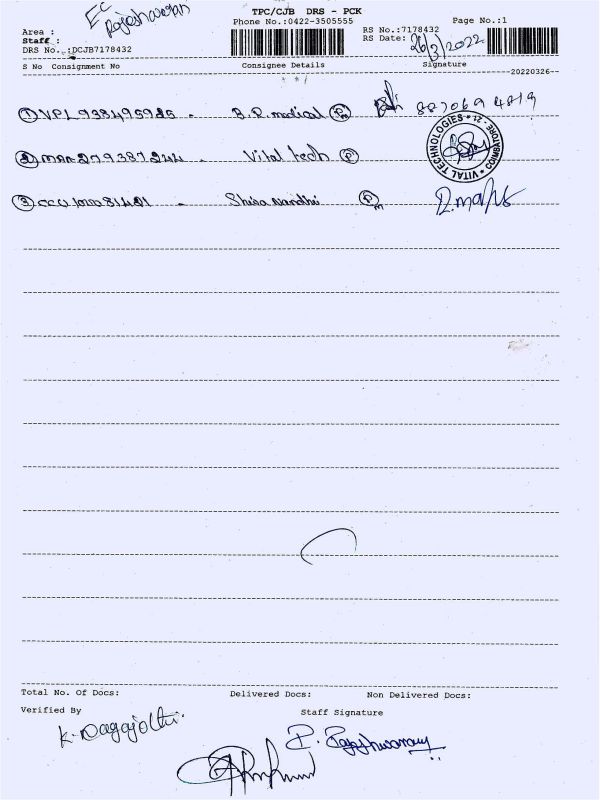 EC
Rajeshwaran
TPC/CJB DRS - PCK
Phone No.:0422-3505555
Page No.:1
Area :
Staff :
DRS No.:DCJB7178432
RS No.:7178432
RS Date: 26/3/2022
S No Consignment No Consignee Details Signature
20220326
1 VPL 938495925 - B.R. medical Pm 887069 4819
2 279387244 - Vital tech P
VITAL TECHNOLOGIES * COIMBATORE - 21 *
3 - Shisa Nandhi Pm
Total No. Of Docs: Delivered Docs: Non Delivered Docs:
Verified By Staff Signature